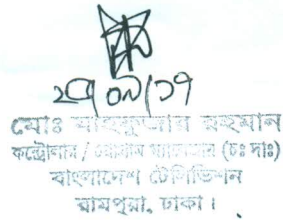 ২৭/০৯/১৭
মোঃ মাহফুজার রহমান
কন্ট্রোলার / প্রোগ্রাম ম্যানেজার (চঃ দাঃ)
বাংলাদেশ টেলিভিশন
রামপুরা, ঢাকা।